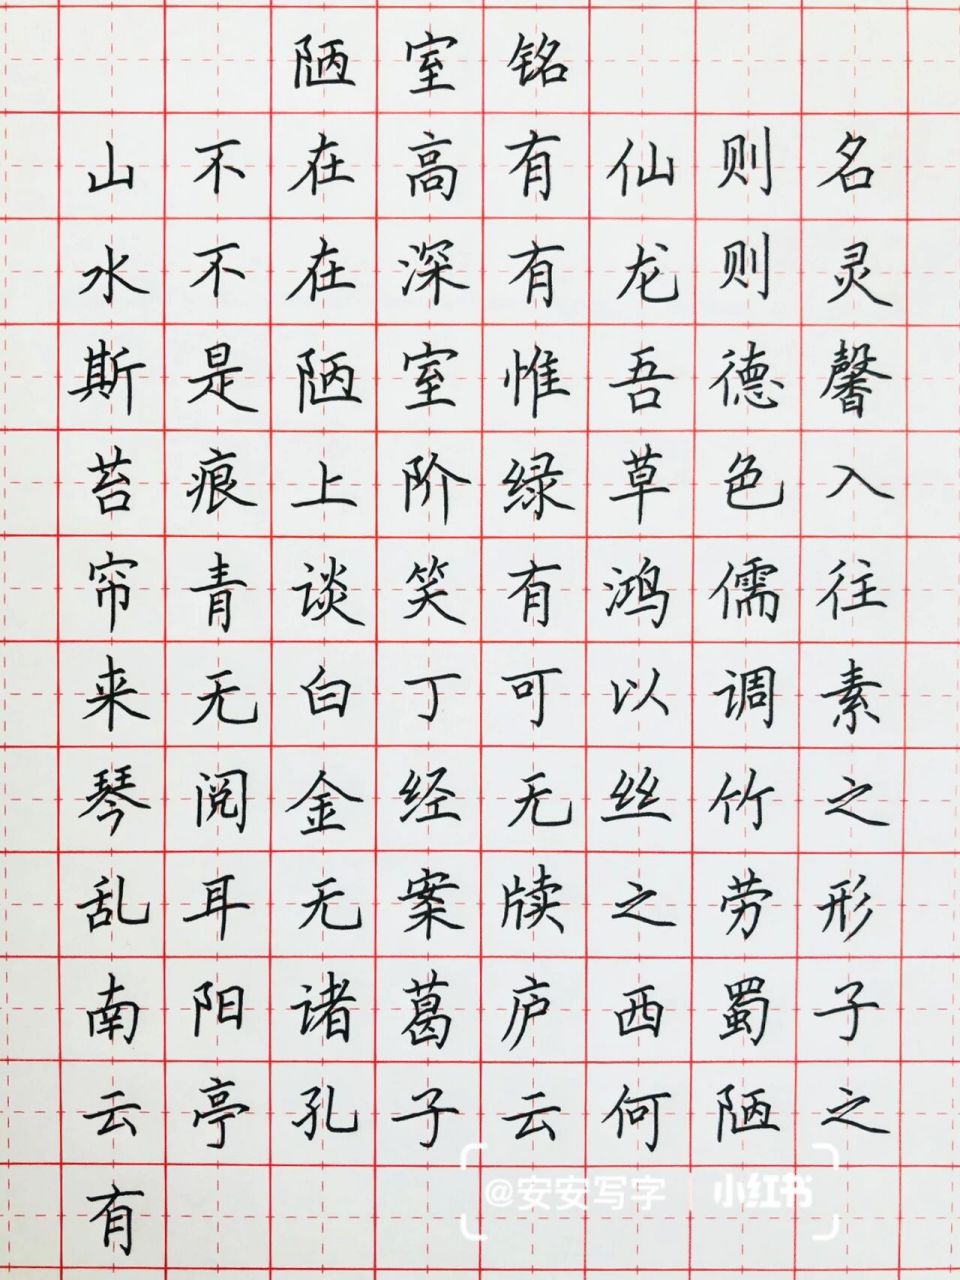 陋室铭
山不在高有仙则名
水不在深有龙则灵
斯是陋室惟吾德馨
苔痕上阶绿草色入
帘青谈笑有鸿儒往
来无白丁可以调素
琴阅金经无丝竹之
乱耳无案牍之劳形
南阳诸葛庐西蜀子
云亭孔子云何陋之
有
@安安写字 小红书